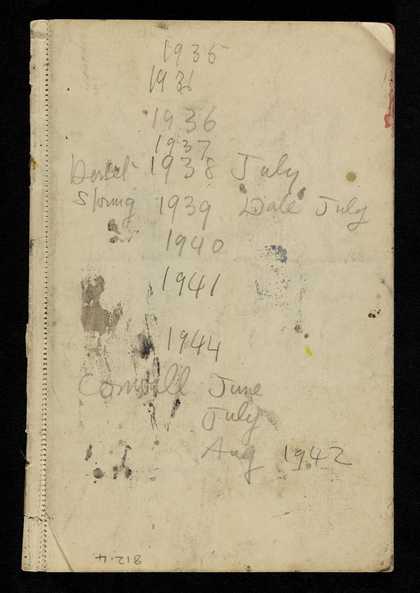 1935
1936
1936
1937
Dorset 1938 July
Spring 1939 Dale July
1940
1941
1944
Cornwall June
July
Aug 1942
812.4